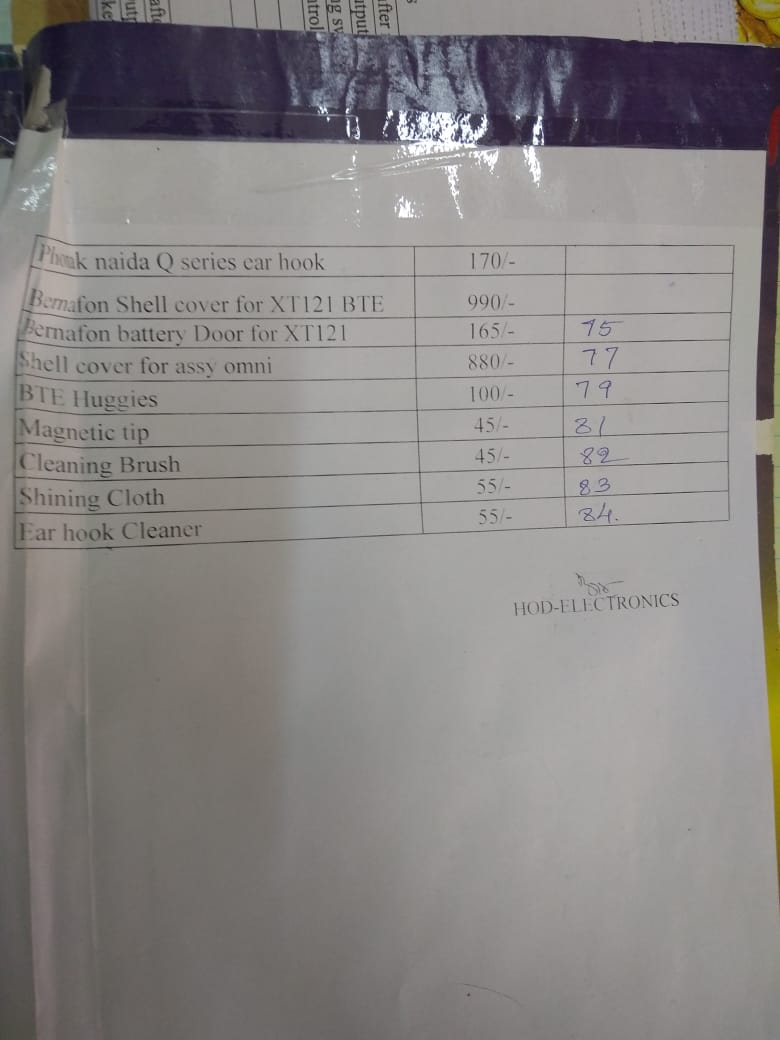 after
utput
ng sy
ntrol
afte
utp
ke
Phonak naida Q series ear hook 170/-
Bernafon Shell cover for XT121 BTE 990/-
Bernafon battery Door for XT121 165/- 75
Shell cover for assy omni 880/- 77
BTE Huggies 100/- 79
Magnetic tip 45/- 81
Cleaning Brush 45/- 82
Shining Cloth 55/- 83
Ear hook Cleaner 55/- 84.
HOD-ELECTRONICS